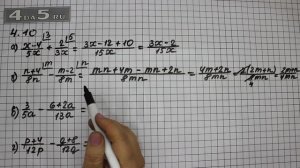 4DA5.RU
4.10
а) x-4/5x + 2/15x = 3x-12+10/15x = 3x-2/15x
б) n+4/8n - m-2/8m = mn+4m-mn+2n/8mn = 4m+2n/8mn = 2m+n/4mn
в) 3/5a - 6+2a/13a =
г) p+4/12p - q+8/12q =